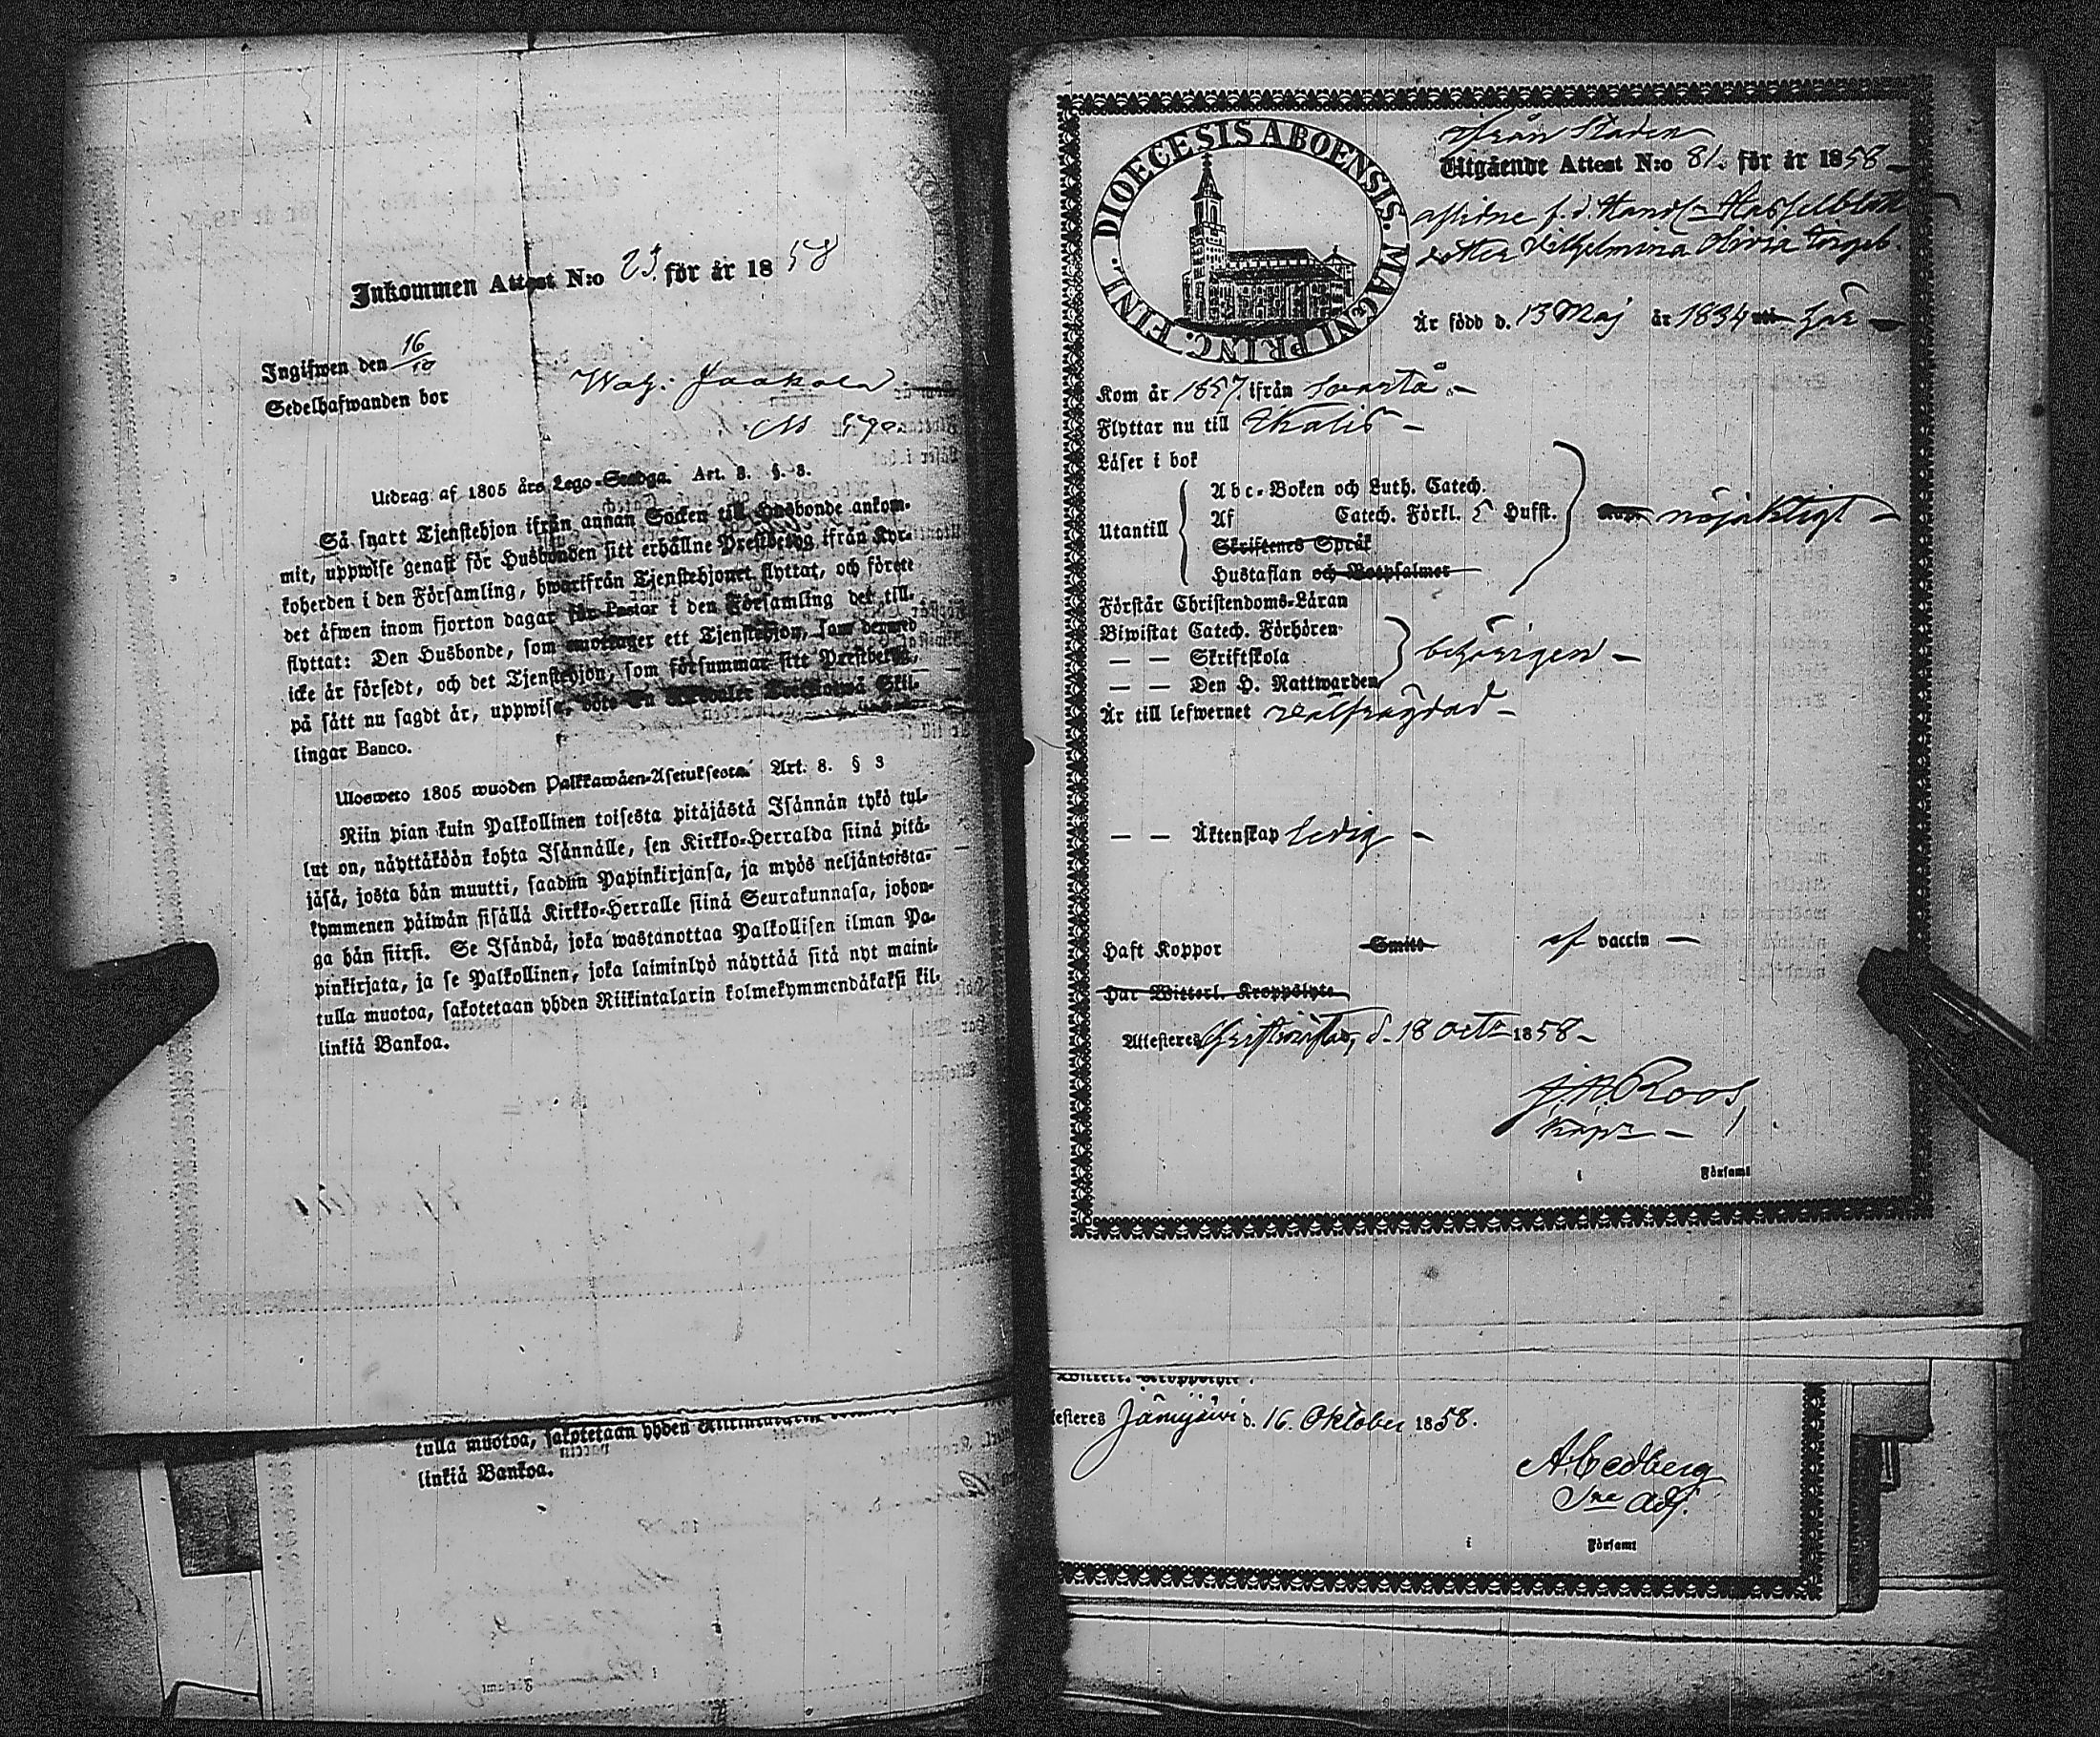 Inkommen Attest N:o 23. för år 1858
Ingifwen den 16/10
Sedelhafwanden bor
Jaakola
Utdrag af 1805 års Lego-Stadga. Art. 8. §. 8.
Så snart Tjenstehjon ifrån annan Socken till Husbonde ankom-
mit, uppwise genast för Husbonden sitt erhållne Prestbetyg ifrån Kyr-
koherden i den Församling, hwarifrån Tjenstehjonet flyttat, och förete
det äfwen inom fjorton dagar för Pastor i den Församling det till-
flyttat: Den Husbonde, som emottager ett Tjenstehjon, som dermed
icke är försedt, och det Tjenstehjon, som försummar sitt Prestbetyg,
på sätt nu sagdt är, uppwisa, böte En Riksdaler Trettiotwå Skil-
lingar Banco.
Ulosweto 1805 wuoden Palkkawäen-Asetuksesta. Art. 8. § 8
Niin pian kuin Palkollinen toisesta pitäjästä Isännän tykö tul-
lut on, näyttäköön kohta Isännälle, sen Kirkko-Herralda siinä pitä-
jäsä, josta hän muutti, saadun Papinkirjansa, ja myös neljäntoista-
kymmenen päiwän sisällä Kirkko-Herralle siinä Seurakunnasa, johon-
ga hän siirsi. Se Isändä, joka wastanottaa Palkollisen ilman Pa-
pinkirjata, ja se Palkollinen, joka laiminlyö näyttää sitä nyt maini-
tulla muotoa, sakotetaan yhden Riikintalarin kolmekymmendäkaksi kil-
linkiä Bankoa.
tulla muotoa, sakotetaan yhden
linkiä Bankoa.
DIOECESIS ABOENSIS. MAGNI PRINC. FINL.
ifrån Staden
Utgående Attest N:o 81. för år 1858
aflidne f.d. Handl. Hasselblatt
dotter Vilhelmina Olivia Ingeb.
Är född d. 13 Maj år 1834
Kom år 1857. ifrån Svartå
Flyttar nu till Ikalis
Läser i bok
Utantill
Abc-Boken och Luth. Catech.
Af Catech. Förkl. 5 Hufst.
Skriftenes Språk
Hustaflan och Botpsalmer
nöjaktigt
Förstår Christendoms-Läran
Biwistat Catech. Förhören
— — Skriftskola
— — Den H. Nattwarden
behörigen
Är till lefwernet välfrägdad
— — Äktenskap ledig
Haft Koppor Smitt af vaccin
Har Witterl. Kroppslyte
Attesteres Christinestad, d. 18 Octr 1858
J. N. Roos
Kapn
i Församl
esteres Jämijärvi d. 16. Oktober 1858.
A. Cedberg
Sre Adj.
i Församl